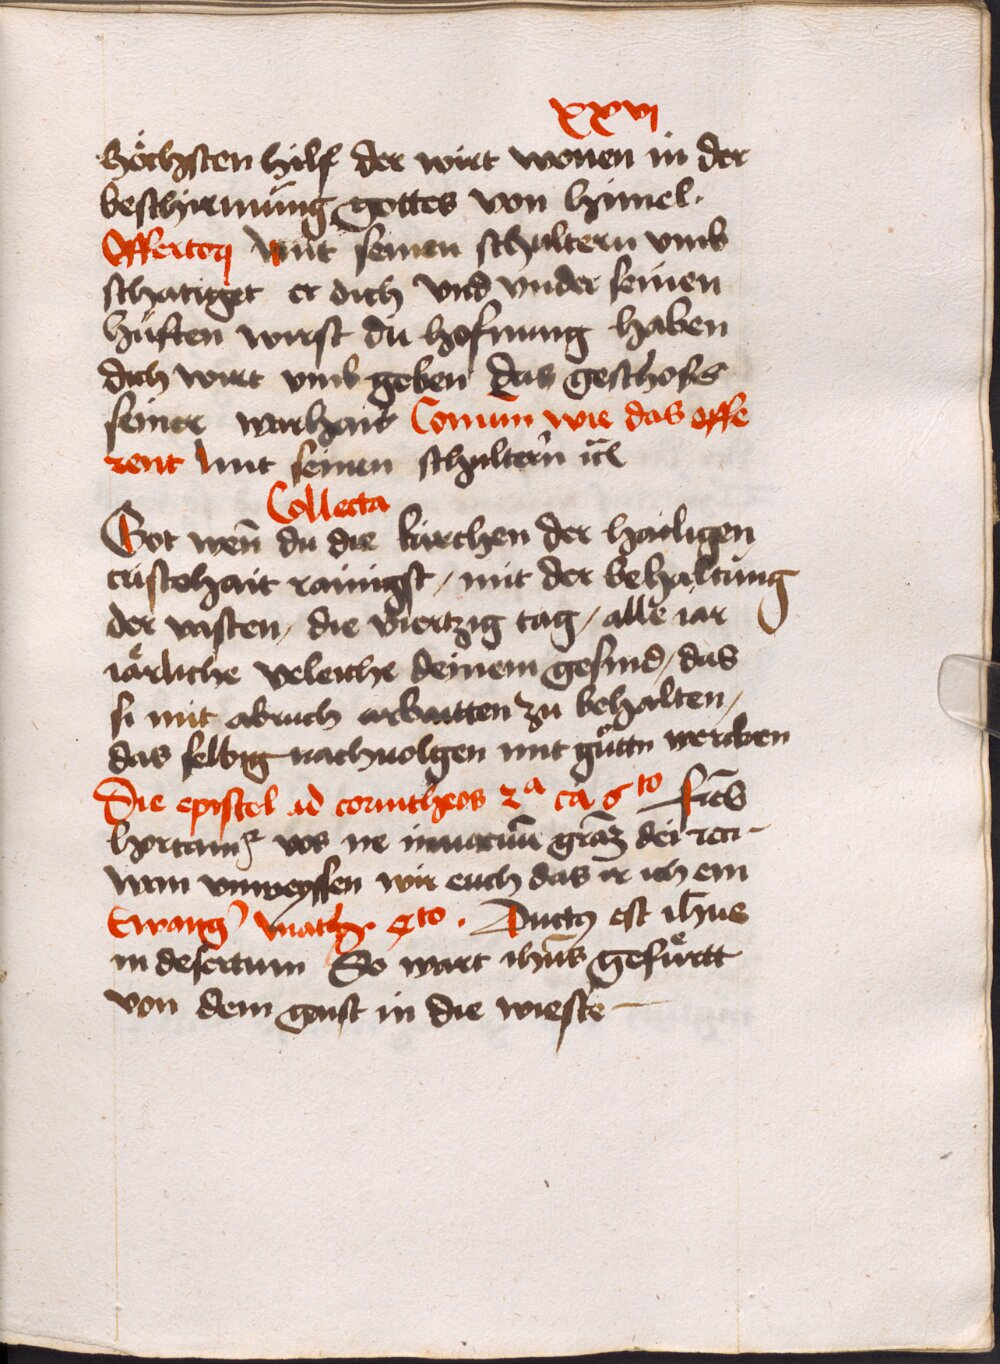 xxvi
höchsten hilf der wirt wonen in der
beschirmung gottes von himel.
Offertorj Mit seinen schultern vmb
schatiget er dich vnd vnder seinen
hüften wirst du hofnung haben
dich wirt vmb geben das geschoss
seiner warhait Comun wie das offe
rent Mit seinen schultern
Collecta
Got wen̄ du die kirchen der hailigen
cristehait rainigst / mit der behaltung
der vasten / die viertzig tag / alle iar
iärliche verleiche deinem gesind / das
si mit abruch arbaitten zu behalten /
das selbig nachuolgen mit guͦttn wercken
Die epistel ad corintheos 2ͣ ca 6ͭͦ frēs
hortam̄ vos ne in vacuū gr̄az dei reci
wan vnweyssen wir euch das ir ich ein
Ewang̉ mathȝ 4to. Duct9 est ih̄us
in desertum So wart ih̄us gefürtt
von dem gaist in die wieste